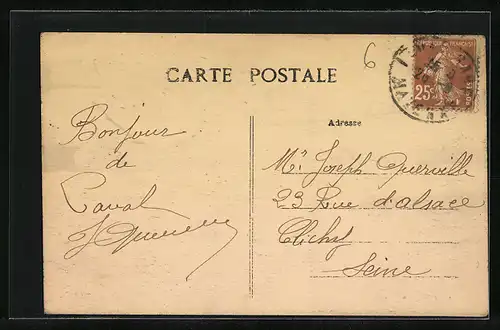 6
CARTE POSTALE
25c
Adresse
Bonjour
de
Laval
Mr Joseph Querville
23 Rue d'alsace
Clichy
Seine